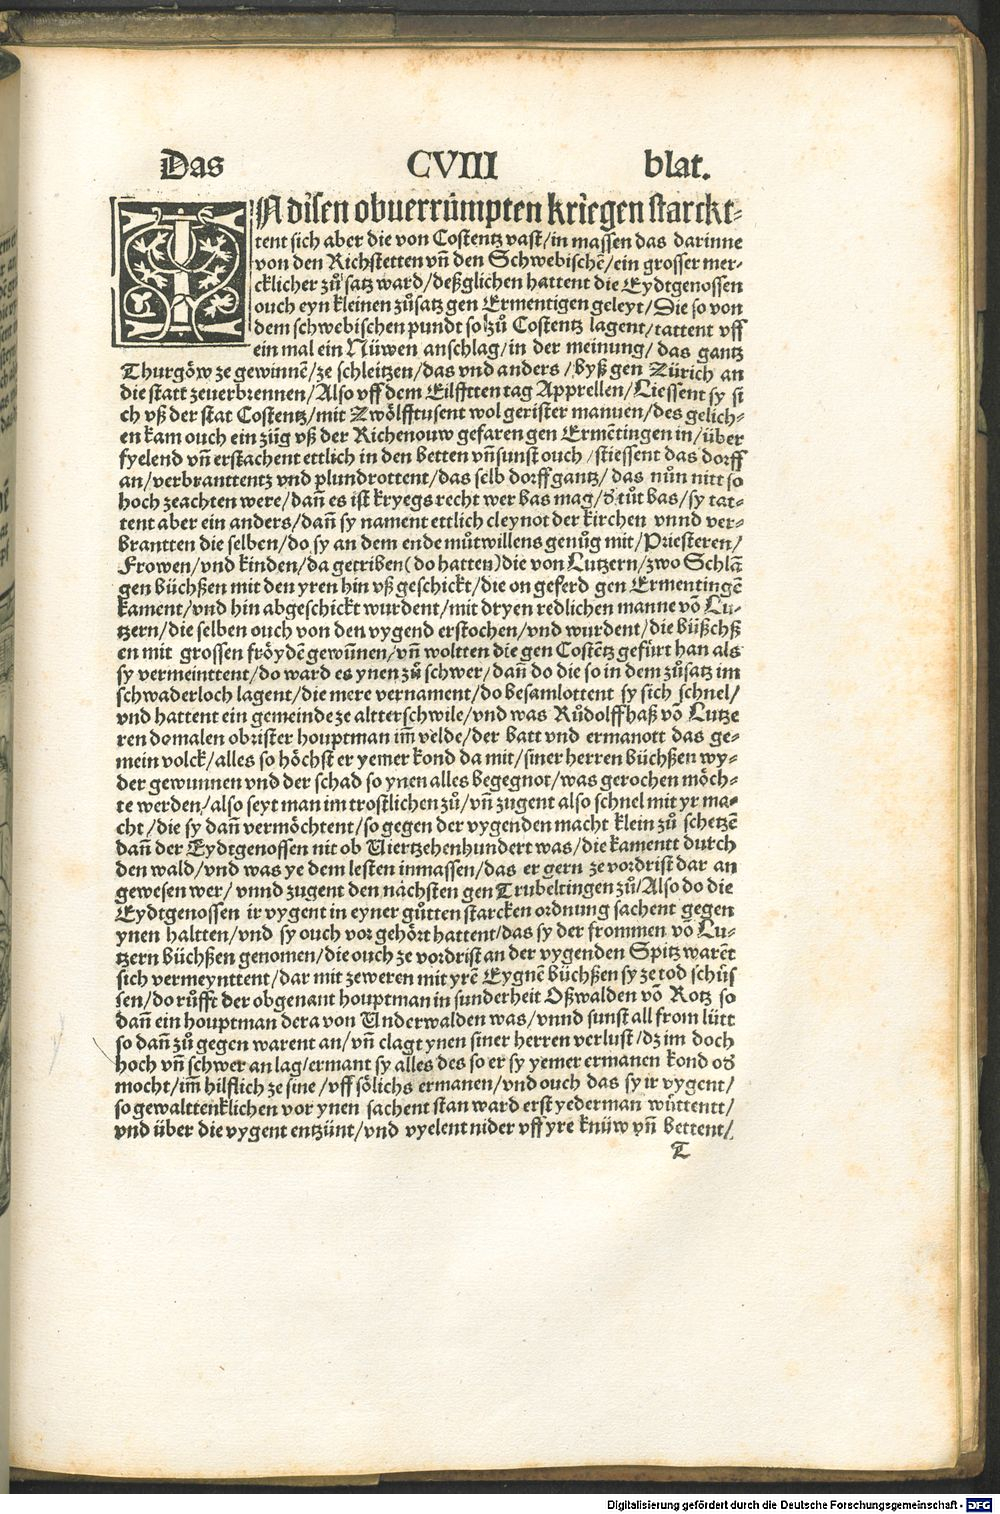 Das CVIII blat.
IN disen obuerrümpten kriegen starckt-
tent sich aber die von Costentz vast/in massen das darinne
von den Richstetten vñ den Schwebischẽ/ein grosser mer-
cklicher zůsatz ward/deßglichen hattent die Eydtgenossen
ouch eyn kleinen zůsatz gen Ermentigen geleyt/Die so von
dem schwebischen pundt so zů Costentz lagent/tattent vff
ein mal ein Nüwen anschlag/in der meinung/das gantz
Thurgöw ze gewinnẽ/ze schleitzen/das vnd anders/byß gen Zürich an
die statt zeuerbrennen/Also vff dem Eilfften tag Apprellen/Liessent sy si
ch vß der stat Costentz/mit Zwölfftusent wol gerister mannen/des gelich-
en kam ouch ein züg vß der Richenouw gefaren gen Ermẽtingen in/über
fyelend vñ erstachent ettlich in den betten vñ sunst ouch/stiessent das dorff
an/verbranttentz vnd plundrottent/das selb dorff gantz/das nůn nitt so
hoch zeachten were/dañ es ist kryegs recht wer bas mag/d tůt bas/sy tat-
tent aber ein anders/dañ sy nament ettlich cleynot der kirchen vnnd ver-
brantten die selben/do sy an dem ende můtwillens genůg mit/Priesteren/
Frowen/vnd kinden/da getriben(do hatten)die von Lutzern/zwo Schlã
gen büchßen mit den yren hin vß geschickt/die on geferd gen Ermentingẽ
kament/vnd hin abgeschickt wurdent/mit dryen redlichen manne võ Lu-
tzern/die selben ouch von den vygend erstochen/vnd wurdent/die büßchß
en mit grossen fröyden gewunnen/vñ woltten die gen Costẽtz gefürt han als
sy vermeinttent/do ward es ynen zů schwer/dañ do die so in dem zůsatz im
schwaderloch lagent/die mere vernament/do besamlottent sy sich schnel/
vnd hattent ein gemeinde ze altterschwile/vnd was Růdolff haß võ Lutze
ren domalen obrister houptman im̃ velde/der batt vnd ermanott das ge-
mein volck/alles so höchst er yemer kond da mit/siner herren büchßen wy-
der gewunnen vnd der schad so ynen alles begegnot/was gerochen möch-
te werden/also seyt man im trostlichen zů/vñ zugent also schnel mit yr ma-
cht/die sy dañ vermöchtent/so gegen der vygenden macht klein zů schetzẽ
dañ der Eydtgenossen nit ob Viertzehenhundert was/die kamentt durch
den wald/vnd was ye dem lesten inmassen/das er gern ze vordrist dar an
gewesen wer/vnnd zugent den nächsten gen Trubeltingen zů/Also do die
Eydtgenossen ir vygent in eyner gůtten starcken ordnung sachent gegen
ynen haltten/vnd sy ouch vor gehört hattent/das sy der frommen võ Lu-
tzern büchßen genomen/die ouch ze vordrist an der vygenden Spitz warẽt
sich vermeynttent/dar mit zeweren mit yrẽ Eygnẽ büchßen sy ze tod schüs
sen/do růfft der obgenant houptman in sunderheit Oßwalden võ Rotz so
dañ ein houptman dera von Underwalden was/vnnd sunst all from lütt
so dañ zů gegen warent an/vñ clagt ynen siner herren verlust/dz im doch
hoch vñ schwer an lag/ermant sy alles des so er sy yemer ermanen kond od
mocht/im̃ hilflich ze sine/vff sölichs ermanen/vnd ouch das sy ir vygent/
so gewalttenklichen vor ynen sachent stan ward erst yederman wůttentt/
vnd über die vygent entzünt/vnd vyelent nider vff yre knüw vñ bettent/
T
Digitalisierung gefördert durch die Deutsche Forschungsgemeinschaft - DFG